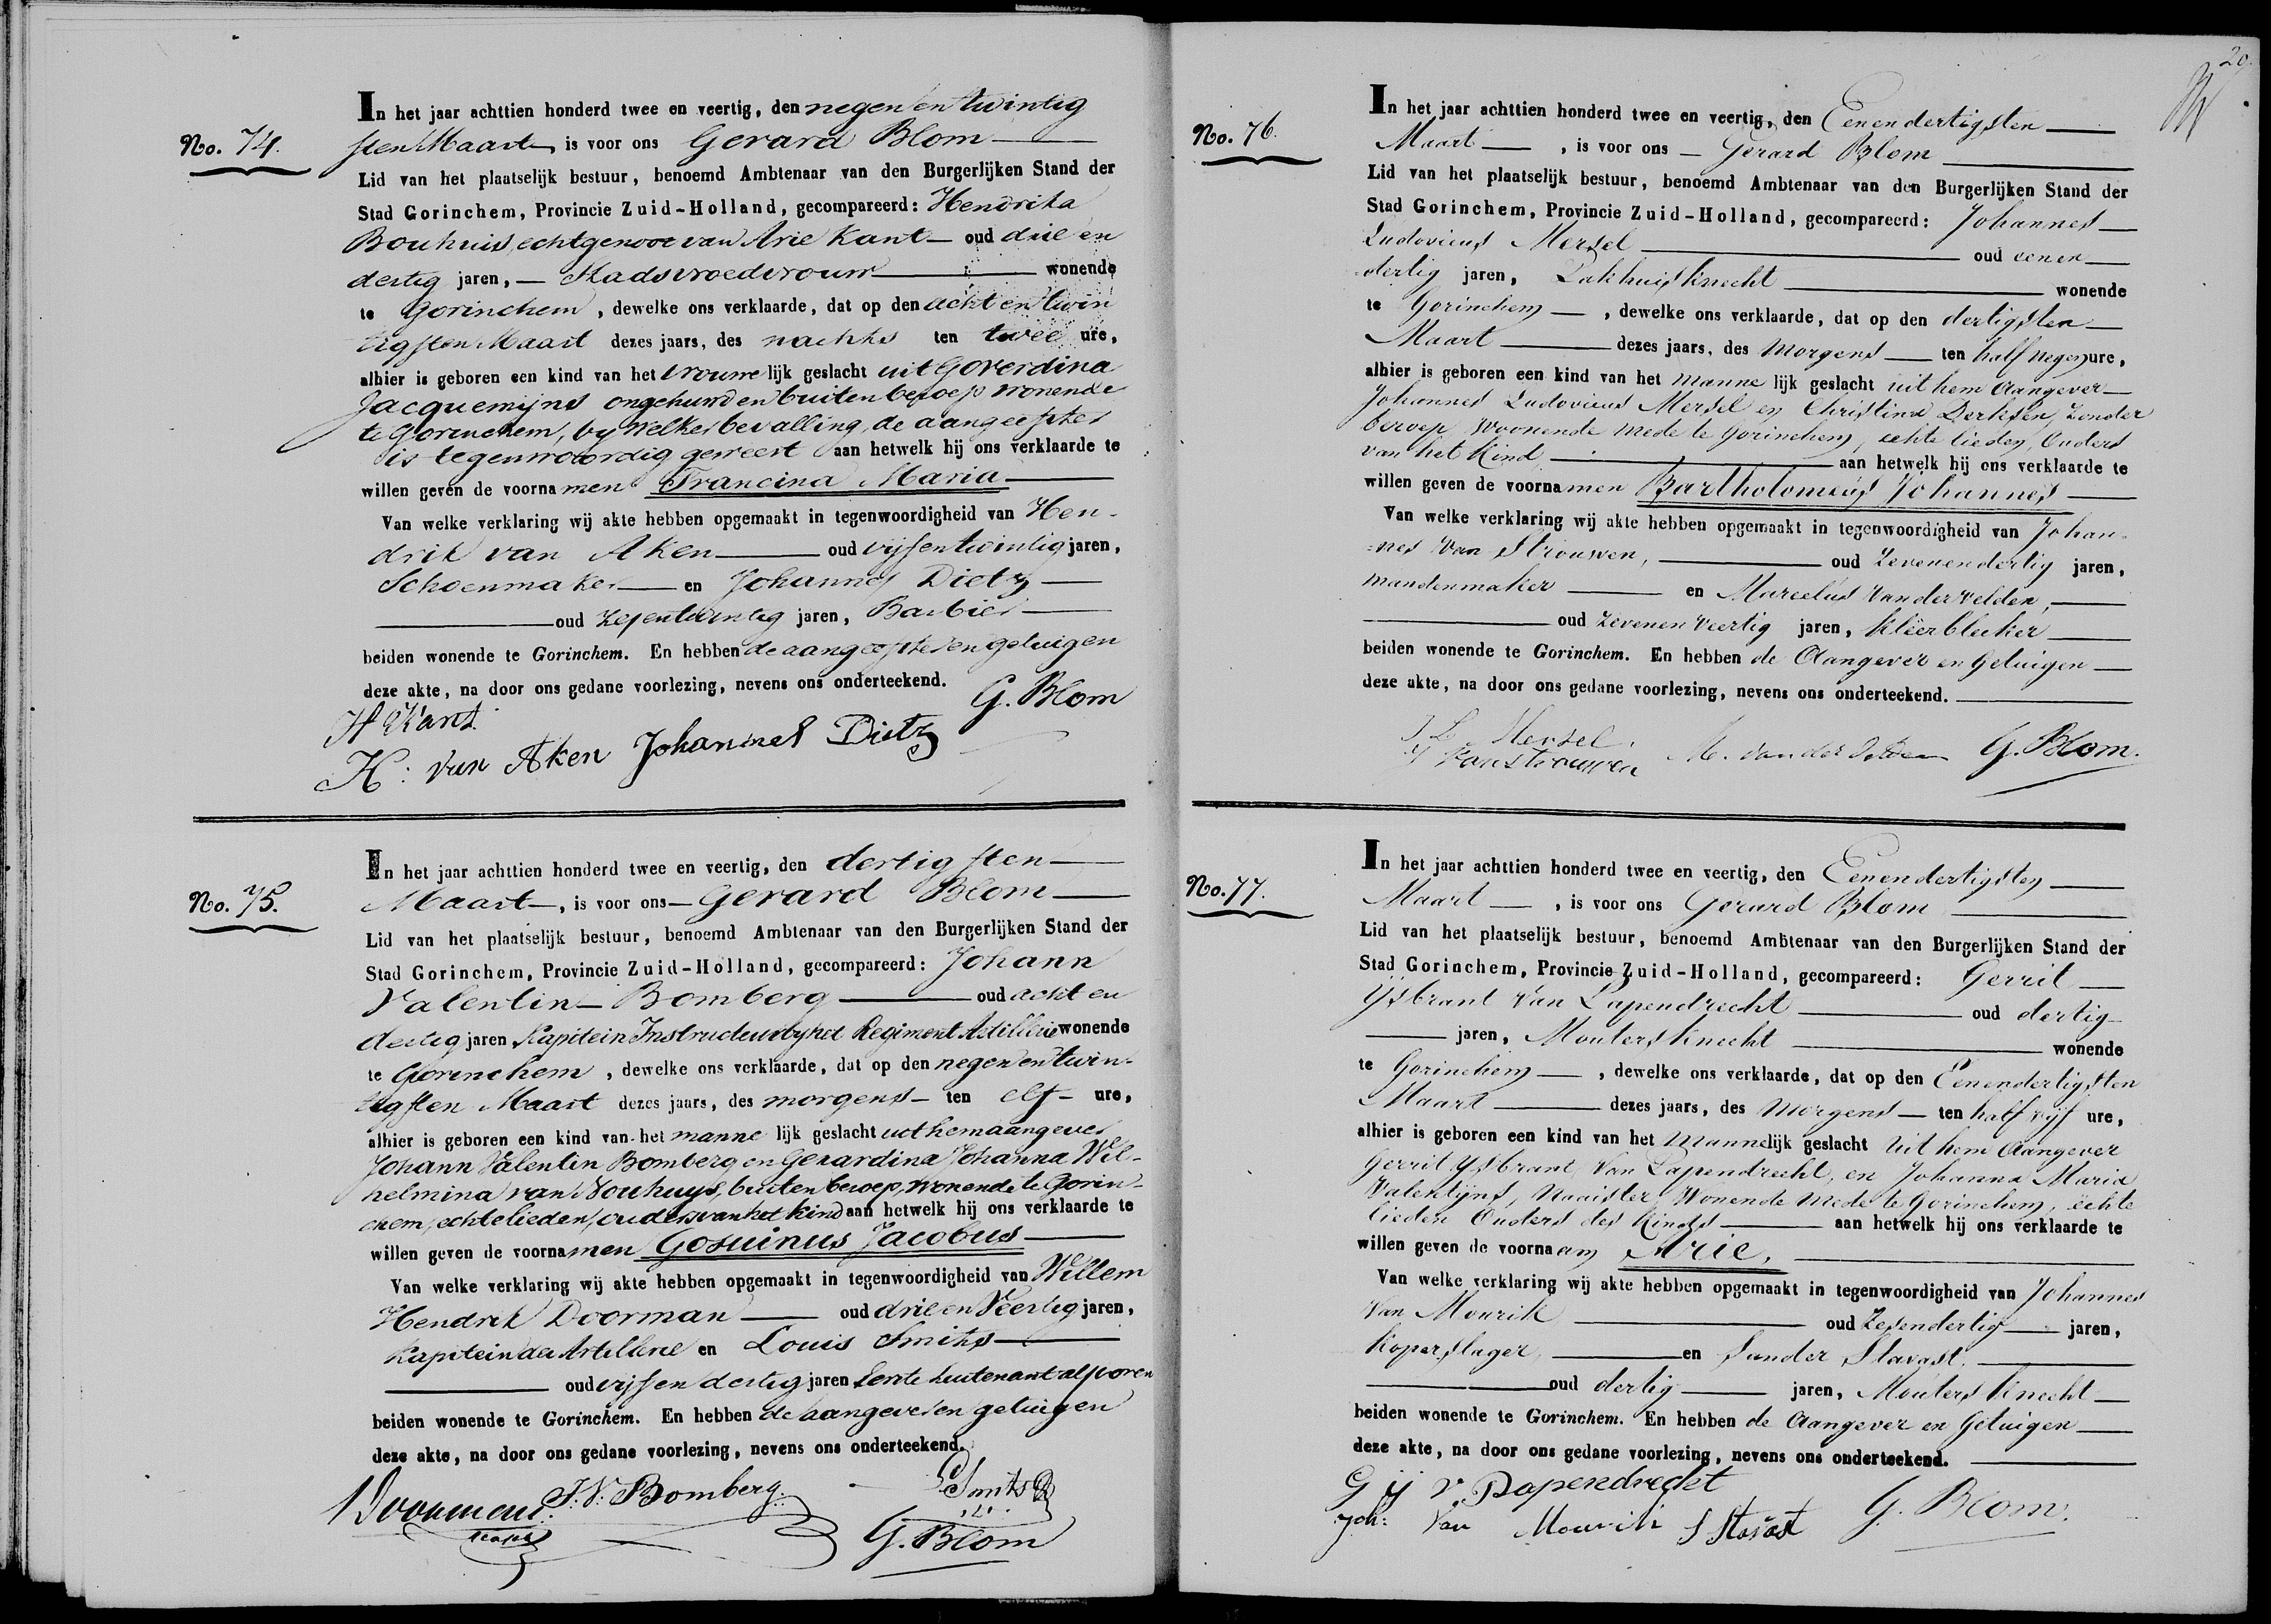 No. 74.
In het jaar achttien honderd twee en veertig, den negen en twintig
sten Maart, is voor ons Gerard Blom
Lid van het plaatselijk bestuur, benoemd Ambtenaar van den Burgerlijken Stand der
Stad Gorinchem, Provincie Zuid-Holland, gecompareerd: Hendrika
Bouhuis, echtgenoot van Arie Kant oud drie en
dertig jaren, Stadsvroedvrouw wonende
te Gorinchem, dewelke ons verklaarde, dat op den acht en twin
tigsten Maart dezes jaars, des nachts ten twee ure,
alhier is geboren een kind van het vrouwelijk geslacht uit Goverdina
Jacquemijns ongehuwd en buiten beroep wonende
te Gorinchem, by welker bevalling, de aangeefster
is tegenwoordig geweest aan hetwelk hij ons verklaarde te
willen geven de voornamen Francina Maria
Van welke verklaring wij akte hebben opgemaakt in tegenwoordigheid van Hen-
drik van Aken oud vijf en twintig jaren,
Schoenmaker en Johannes Dietz
oud zesentwintig jaren, Barbier
beiden wonende te Gorinchem. En hebben de aangeefster en getuigen
deze akte, na door ons gedane voorlezing, nevens ons onderteekend.
G. Blom
H Kant
H: van Aken Johannes Dietz
No. 75.
In het jaar achttien honderd twee en veertig, den dertigsten
Maart, is voor ons Gerard Blom
Lid van het plaatselijk bestuur, benoemd Ambtenaar van den Burgerlijken Stand der
Stad Gorinchem, Provincie Zuid-Holland, gecompareerd: Johann
Valentin Bomberg oud acht en
dertig jaren Kapitein Instructeur by het Regiment Artillerie wonende
te Gorinchem, dewelke ons verklaarde, dat op den negen en twin-
tigsten Maart dezes jaars, des morgens ten elf ure,
alhier is geboren een kind van het mannelijk geslacht uit hem aangever
Johann Valentin Bomberg en Gerardina Johanna Wil-
helmina van Nouhuys, buiten beroep, wonende te Gorin-
chem, echtelieden, ouders van het kind aan hetwelk hij ons verklaarde te
willen geven de voornamen Gosuinus Jacobus
Van welke verklaring wij akte hebben opgemaakt in tegenwoordigheid van Willem
Hendrik Doorman oud drie en Veertig jaren,
Kapitein der Artillerie en Louis Smits
oud vijf en dertig jaren Eerste Luitenant als voren
beiden wonende te Gorinchem. En hebben de aangever en getuigen
deze akte, na door ons gedane voorlezing, nevens ons onderteekend.
Doorman J. V. Bomberg. L Smits
G. Blom
29.
No. 76.
In het jaar achttien honderd twee en veertig, den Eenendertigsten
Maart, is voor ons Gerard Blom
Lid van het plaatselijk bestuur, benoemd Ambtenaar van den Burgerlijken Stand der
Stad Gorinchem, Provincie Zuid-Holland, gecompareerd: Johannes
Ludovicus Mersel oud eenen
dertig jaren, Pakhuisknecht wonende
te Gorinchem, dewelke ons verklaarde, dat op den dertigsten
Maart dezes jaars, des Morgens ten half negen ure,
alhier is geboren een kind van het mannelijk geslacht uit hem Aangever
Johannes Ludovicus Mersel en Christina Derksen, Zonder
beroep Woonende mede te Gorinchem, echte lieden, Ouders
van het Kind aan hetwelk hij ons verklaarde te
willen geven de voornamen Bartholomeus Johannes
Van welke verklaring wij akte hebben opgemaakt in tegenwoordigheid van Johan-
nes Van Strouwen, oud Zevenendertig jaren,
mandenmaker en Marcelus Van der Velden,
oud Zevenen Veertig jaren, Kleerbleeker
beiden wonende te Gorinchem. En hebben de Aangever en Getuigen
deze akte, na door ons gedane voorlezing, nevens ons onderteekend.
J L Mersel.
J Van Strouwen M. van der Velden G. Blom.
No. 77.
In het jaar achttien honderd twee en veertig, den Eenendertigsten
Maart, is voor ons Gerard Blom
Lid van het plaatselijk bestuur, benoemd Ambtenaar van den Burgerlijken Stand der
Stad Gorinchem, Provincie Zuid-Holland, gecompareerd: Gerrit
Ysbrant Van Papendrecht oud dertig
jaren, Moutersknecht wonende
te Gorinchem, dewelke ons verklaarde, dat op den Eenendertigsten
Maart dezes jaars, des Morgens ten half vijf ure,
alhier is geboren een kind van het Mannelijk geslacht uit hem Aangever
Gerrit Ysbrant Van Papendrecht, en Johanna Maria
Valentijns, Naaister Wonende mede te Gorinchem, echte
lieden Ouders des Kinds aan hetwelk hij ons verklaarde te
willen geven de voornaam Arie,
Van welke verklaring wij akte hebben opgemaakt in tegenwoordigheid van Johannes
Van Mourik oud Zesendertig jaren,
Koperslager, en Sander Stavast.
oud dertig jaren, Moutersknecht
beiden wonende te Gorinchem. En hebben de Aangever en Getuigen
deze akte, na door ons gedane voorlezing, nevens ons onderteekend.
G ij v. Papendrecht
Joh: Van Mourik S Stavast G. Blom.